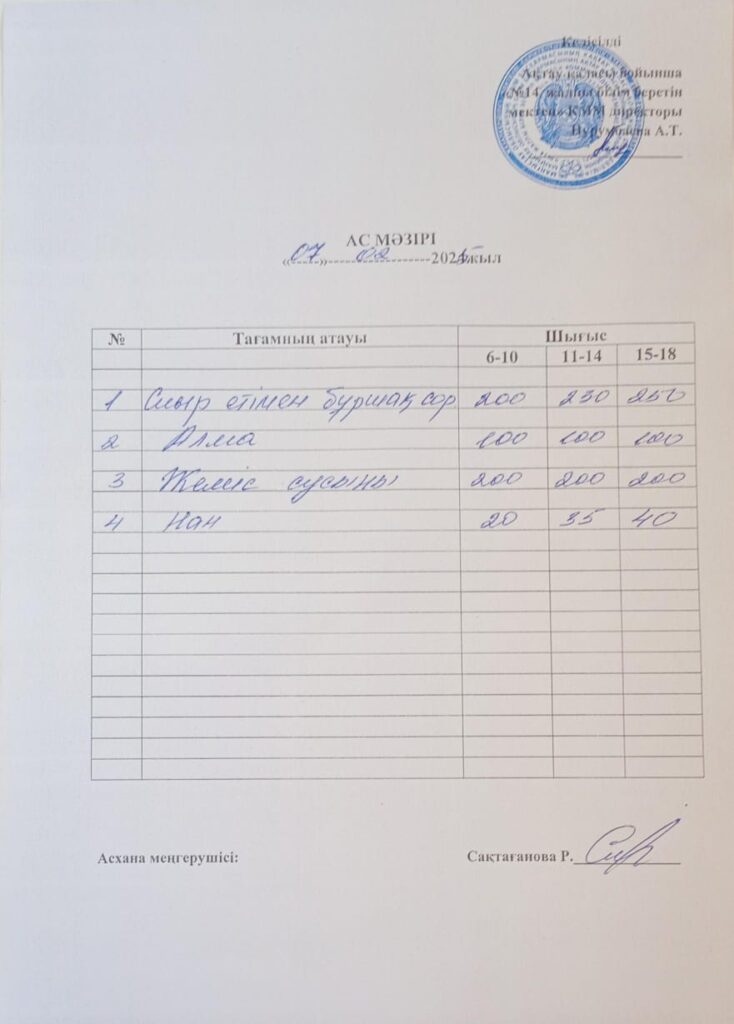 Келісілді
Ақтау қаласы бойынша
«№14 жалпы білім беретін
мектеп» КММ директоры
Нурумбаева А.Т.
АС МӘЗІРІ
«07» 02 2025 жыл
№ Тағамның атауы Шығыс
6-10 11-14 15-18
1 Сиыр етімен бұршақ сор 200 230 250
2 Алма 100 100 100
3 Жеміс сусыны 200 200 200
4 Нан 20 35 40
Асхана меңгерушісі: Сақтағанова Р.